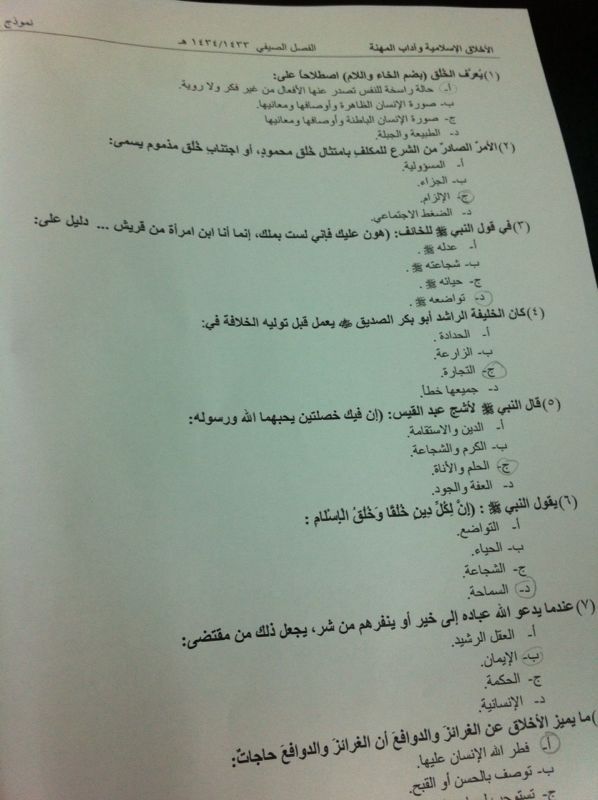 الأخلاق الإسلامية وآداب المهنة الفصل الصيفي ١٤٣٤/١٤٣٣ هـ نموذج
(١) يُعرَّف الخُلق (بضم الخاء واللام) اصطلاحاً على:
أ- حالة راسخة للنفس تصدر عنها الأفعال من غير فكر ولا روية.
ب- صورة الإنسان الظاهرة وأوصافها ومعانيها.
ج- صورة الإنسان الباطنة وأوصافها ومعانيها
د- الطبيعة والجبلة.
(٢) الأمرُ الصادرُ من الشرع للمكلف بامتثال خُلق محمودٍ، أو اجتناب خُلق مذموم يسمى:
أ- المسؤولية.
ب- الجزاء.
ج- الإلزام.
د- الضغط الاجتماعي.
(٣) في قول النبي ﷺ للخائف: (هون عليك فإني لست بملك، إنما أنا ابن امرأة من قريش ... دليل على:
أ- عدله ﷺ .
ب- شجاعته ﷺ .
ج- حيائه ﷺ .
د- تواضعه ﷺ .
(٤) كان الخليفة الراشد أبو بكر الصديق ﷺ يعمل قبل توليه الخلافة في:
أ- الحدادة .
ب- الزارعة.
ج- التجارة.
د- جميعها خطأ.
(٥) قال النبي ﷺ لأشج عبد القيس: (إن فيك خصلتين يحبهما الله ورسوله:
أ- الدين والاستقامة.
ب- الكرم والشجاعة.
ج- الحلم والأناة.
د- العفة والجود.
(٦) يقول النبي ﷺ : (إِنَّ لِكُلِّ دِينٍ خُلُقًا وَخُلُقُ الإِسْلَامِ :
أ- التواضع.
ب- الحياء.
ج- الشجاعة.
د- السماحة.
(٧) عندما يدعو الله عباده إلى خير أو ينفرهم من شر، يجعل ذلك من مقتضى:
أ- العقل الرشيد.
ب- الإيمان.
ج- الحكمة.
د- الإنسانية.
) ما يميز الأخلاق عن الغرائز والدوافعَ أن الغرائزَ والدوافعَ حاجاتٌ:
أ- فطر الله الإنسان عليها.
ب- توصف بالحسن أو القبح.
ج- تستوجب